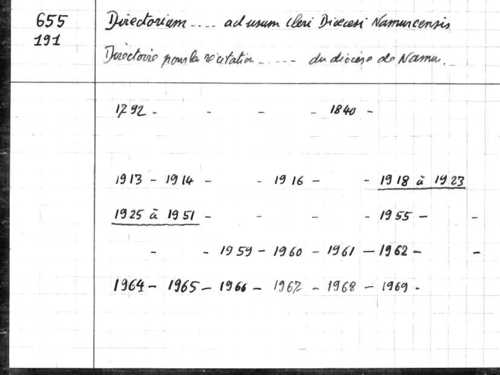 655
191
Directorium .... ad usum Cleri Diocesi Namurcensis
Directoire pour la récitation ..... du diocèse de Namur.
1792 - - - - 1840 -
1913 - 1914 - - 1916 - - 1918 à 1923
1925 à 1951 - - - - 1955 - -
- - 1959 - 1960 - 1961 - 1962 - -
1964 - 1965 - 1966 - 1967 - 1968 - 1969 -